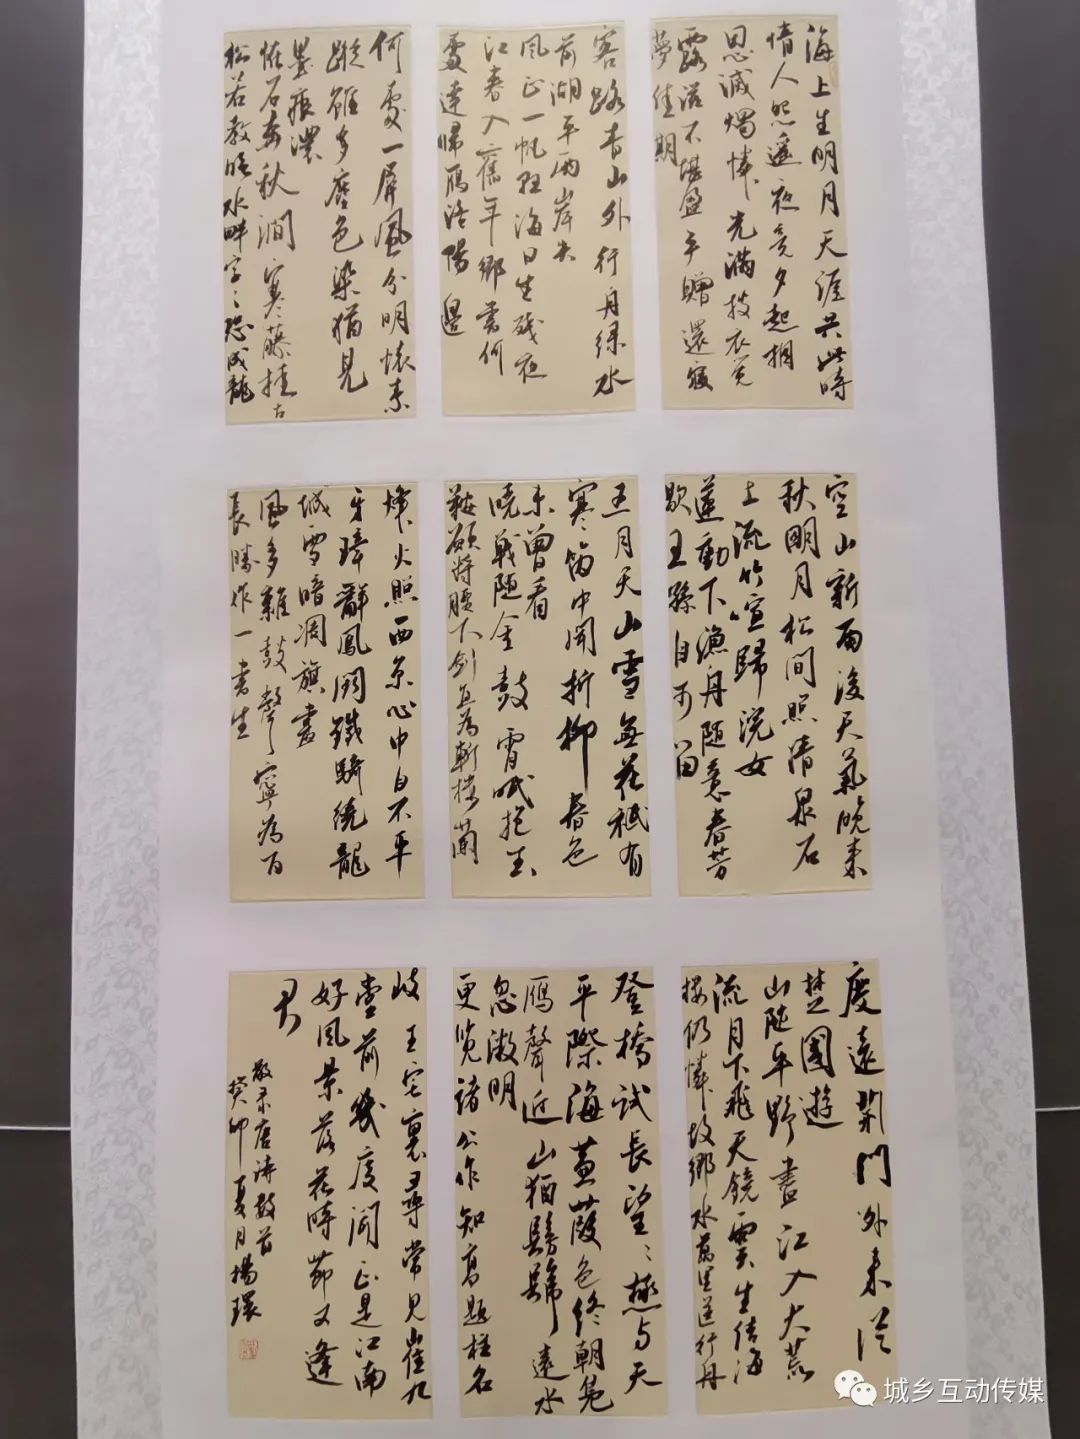 海上生明月天涯共此時
情人怨遥夜竟夕起相
思滅燭憐光滿披衣覺
露滋不堪盈手贈還寝
夢佳期
客路青山外行舟绿水
前湖平兩岸失
風正一帆懸海日生残夜
江春入舊年鄉書何
處達歸雁洛陽邊
何處一屏風分明懐素
蹤雖多塵色染猶見
墨痕濃
恠石奔秋澗寒藤挂古
松若教臨水畔字〻恐成龍
空山新雨後天氣晚来
秋明月松间照清泉石
上流竹喧歸浣女
蓮動下漁舟随意春芳
歇王孫自可留
五月天山雪無花祇有
寒笛中聞折柳春色
未曾看
曉戰随金鼓宵眠抱玉
鞍願将腰下剑直為斬楼蘭
烽火照西京心中自不平
牙璋辭鳳阙鐵騎繞龍
城雪暗凋旗畫
風多雜鼓聲寧為百
長勝作一書生
度遠荆門外来從
楚國遊
山随平野盡江入大荒
流月下飛天鏡雲生结海
楼仍憐故鄉水萬里送行舟
登橋試長望〻極与天
平際海蒹葭色終朝凫
雁聲近山猶髣髴遠水
忽微明
更览諸公作知高題柱名
岐王宅裏尋常見崔九
堂前幾度闻正是江南
好風景落花時節又逢
君
敬录唐詩数首
癸卯夏月揚環
城乡互动传媒